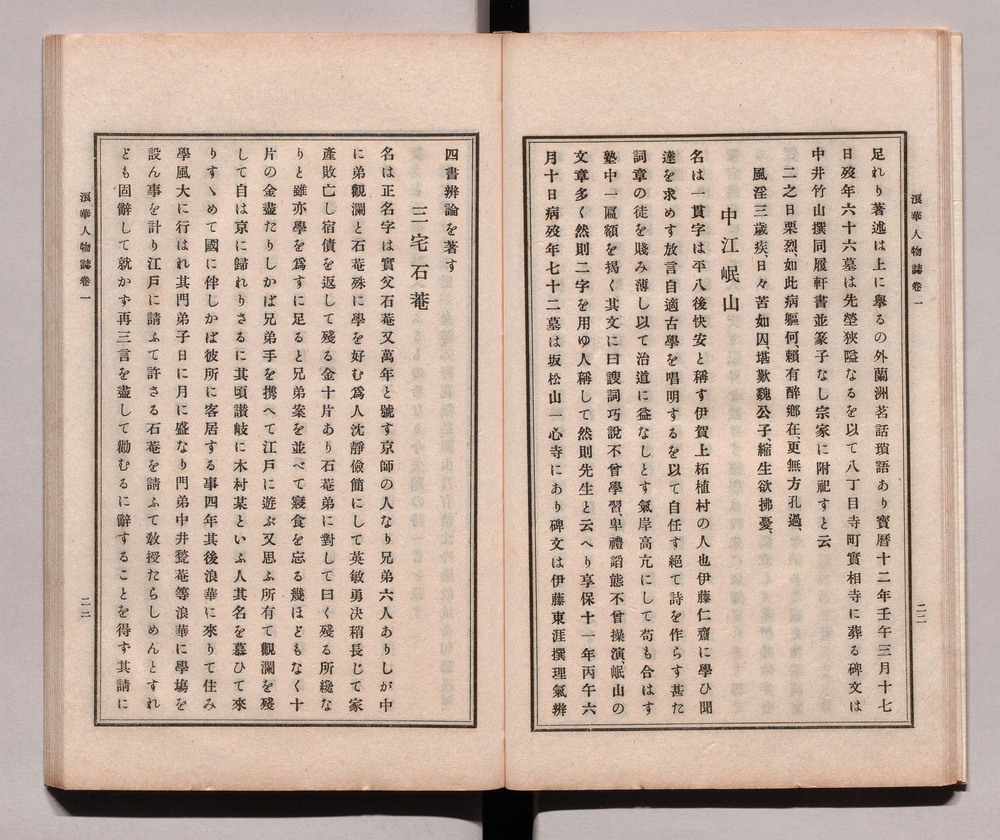 浪華人物誌卷一
二三
足れり著述は上に擧るの外蘭洲茗話瑣語あり寳曆十二年壬午三月十七
日歿年六十六墓は先塋狹隘なるを以て八丁目寺町實相寺に葬る碑文は
中井竹山撰同履軒書並篆子なし宗家に附祀すと云
二之日栗烈、如此病軀何、頼有醉鄕在、更無方孔過、
風淫三歲疾、日々苦如囚、堪歎魏公子、縮生欲拂憂、
中江岷山
名は一貫字は平八後快安と稱す伊賀上柘植村の人也伊藤仁齋に學ひ聞
達を求めす放言自適古學を唱明するを以て自任す絕て詩を作らす甚た
詞章の徒を賤み薄し以て治道に益なしとす氣岸高亢にして苟も合はす
塾中一匾額を揭く其文に曰謏詞巧說不曾學習、卑禮謟態不曾操演、岷山の
文章多く然則二字を用ゆ人稱して然則先生と云へり享保十一年丙午六
月十日病歿年七十二墓は坂松山一心寺にあり碑文は伊藤東涯撰理氣辨
四書辨論を著す
三宅石菴
名は正名字は實父石菴又萬年と號す京師の人なり兄弟六人ありしが中
に弟觀瀾と石菴殊に學を好む爲人沈靜儉簡にして英敏勇决稍長じて家
產敗亡し宿債を返して殘る金十片あり石菴弟に對して曰く殘る所纔な
りと雖亦學を爲すに足ると兄弟案を並べて寢食を忘る幾ほどもなく十
片の金盡たりしかば兄弟手を携へて江戶に遊ぶ又思ふ所有て觀瀾を殘
して自は京に歸れりさるに其頃讃岐に木村某といふ人其名を慕ひて來
りすゝめて國に伴しかば彼所に客居する事四年其後浪華に來りて住み
學風大に行はれ其門弟子日に月に盛なり門弟中井甃菴等浪華に學塲を
設ん事を計り江戶に請ふて許さる石菴を請ふて敎授たらしめんとすれ
ども固辭して就かす再三言を盡して勸むるに辭することを得す其請に
浪華人物誌卷一
二二